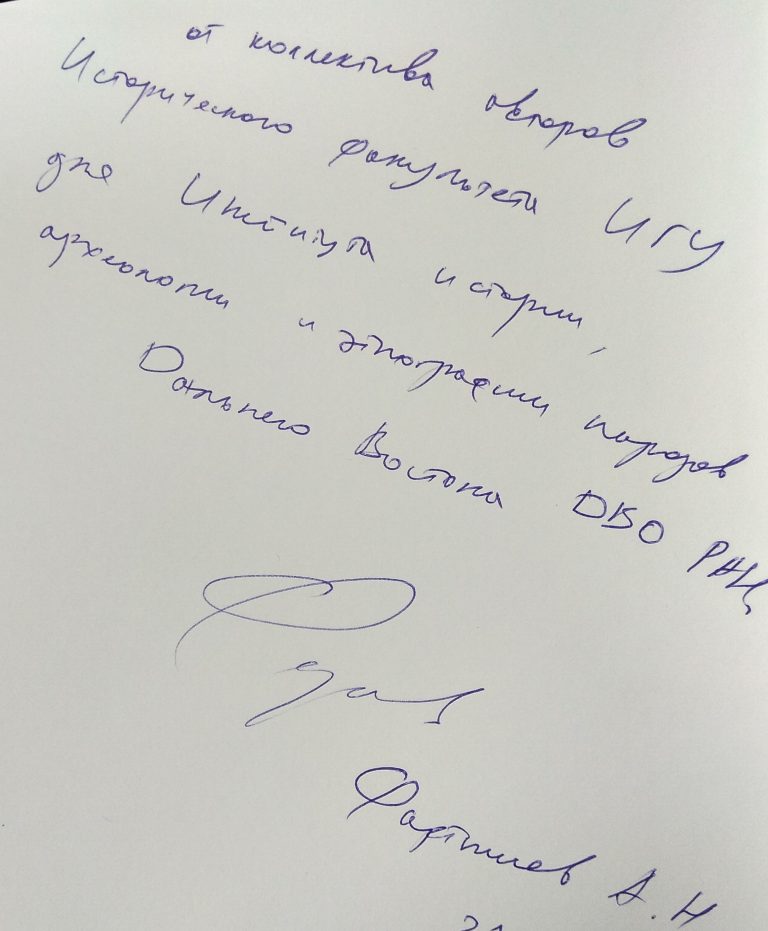 от коллектива авторов
Исторического факультета ИГУ
для Института истории,
археологии и этнографии народов
Дальнего Востока ДВО РАН,
А.Н